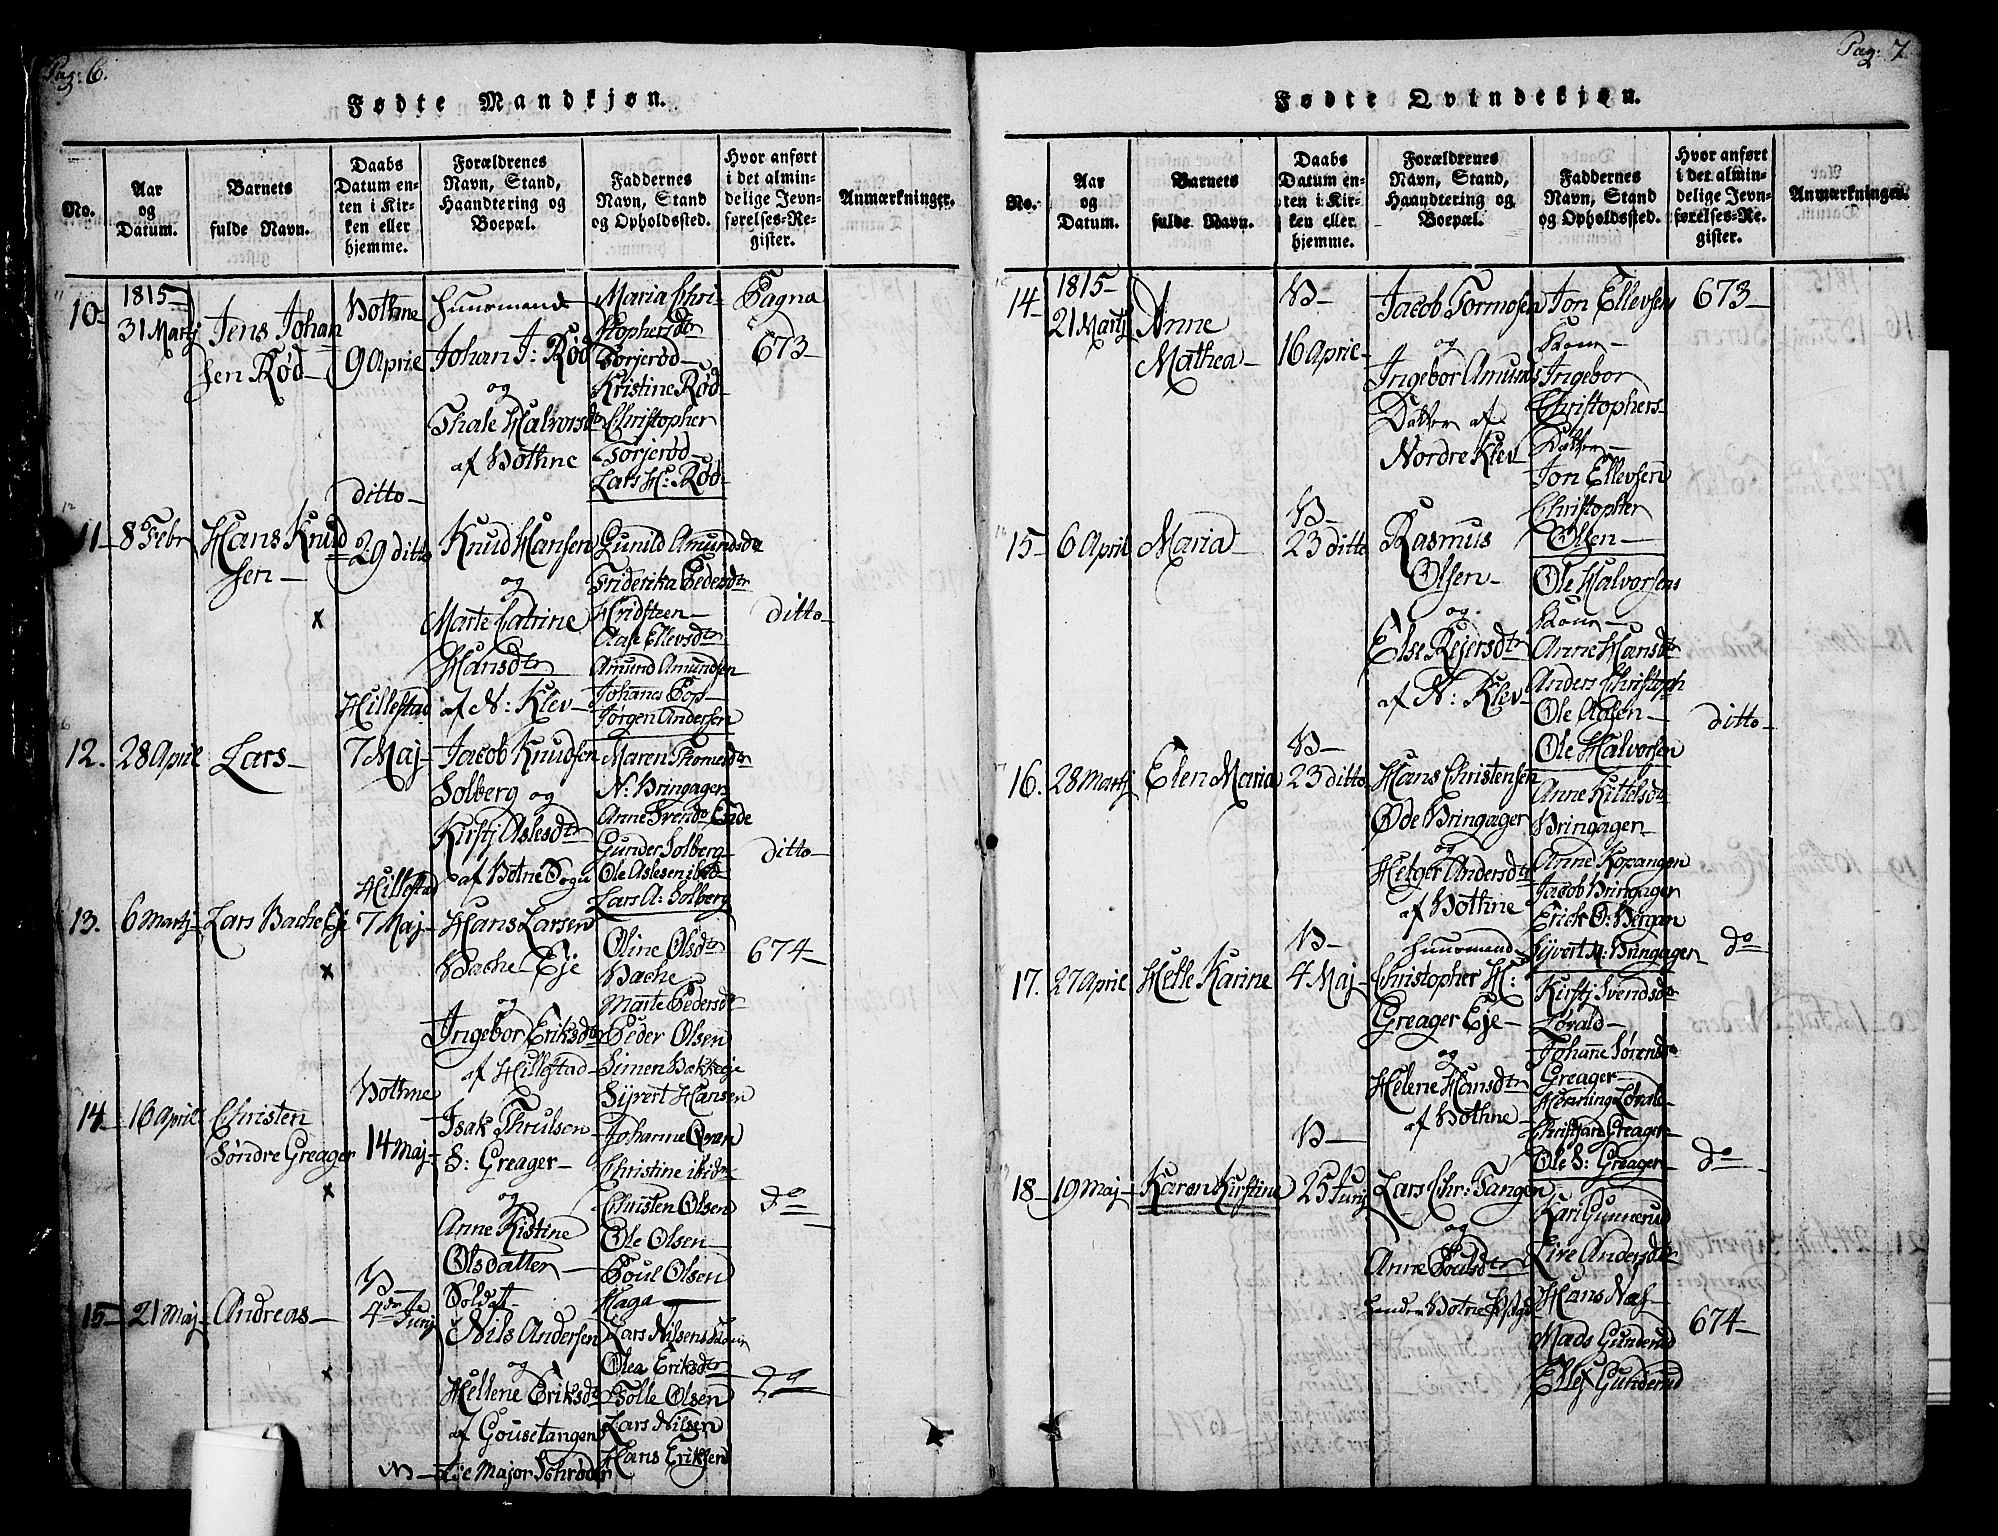 Pag: 6.
Fødte Mandkjøn.
No.
Aar
og
Datum.
Barnets
fulde Navn.
Daabs
Datum en-
ten i Kir-
ken eller
hjemme.
Forældrenes
Navn, Stand,
Haandtering og
Boepæl.
Faddernes
Navn, Stand
og Opholdssted.
Hvor anført
i det almin-
delige Jevn-
førelses-Re-
gister.
Anmærkninger.
10-
1815-
31 Martj
Jens Johan
sen Rød-
Bothne
9 April
Huusmand
Johan J: Rød
og
Thale Halvorsdtr
af Bothne
Maria Chri-
stophersdtr
Torjerød-
Kristine Rød-
Christopher
Torjerød-
Lars H: Rød-
Pagna
673-
11-
8 Febr
Hans Knud
sen-
ditto-
29 ditto
Knud Hansen
og
Marte Catrine
Hansdtr
af N: Klev-
Gunild Amundsdtr
Friderika Pedersdtr
Hridsteen-
Aase Ellevsdtr
Amund Amundsen
Johanes
Jørgen Andersen
ditto-
12.
28 April
Lars-
Hillestad
7 Maj-
Jacob Knudsen
Solberg og
Kirstj Aslesdtr
af Botne Sogn
Maren Thomesdtr
N: Bringager
Anne Ende
Gunder Solberg-
Ole Aslesen ibid
Lars A: Solberg
ditto-
13.
6 Martj-
Lars Bache Eje
Hillestad
7 Maj-
Hans Larsen
Bache Eje
og
Ingebor Eriksdtr
af Hillestad-
Oline Olsdtr
Bache
Marte Pedersdtr
Peder Olsen
Simen Bakkeje
Sivert Hansen
674-
14-
16 April
Christen
Søndre Greager
Bothne
14 Maj-
Isak Thrulson
S: Greager-
og
Anne Kistine
Olsdatter-
Johanne
Christine ibidm
Christen Olsen
Ole Olsen-
Poul Olsen
Haga-
do
15-
21 Maj-
Andreas-
B-
4de Junj
Soldatt
Nils Andersen
og
Hellene Eriksdtr
af Gousetangen
Major Schrøder
Lars Nilsens
Olea Eriksdtr
Tolle Olsen
Lars Nilsen
Hans Eriksen
do
Pag: 7
Fødte Qvindekjøn.
No.
Aar
og
Datum.
Barnets
fulde Navn.
Daabs
Datum en-
ten i Kir-
ken eller
hjemme.
Forældrenes
Navn, Stand,
Haandtering og
Boepæl.
Faddernes
Navn, Stand
og Opholdssted.
Hvor anført
i det almin-
delige Jevn-
førelses-Re-
gister.
Anmærkninger.
14-
1815-
21 Martj
Anne
Mathea-
B-
16 April-
Jacob Tormosen
og
Ingebor Amunds
Datter af
Nordre Klev-
Jon Ellevsen
Kone-
Ingebor
Christophers-
Datter-
Jon Ellevsen
Christopher
Olsen-
673-
15-
6 April
Maria-
B-
23 ditto
Rasmus
Olsen-
og
Else Rejersdtr
af N: Klev-
Ole Halvorsens
Kone-
Anne Hansdtr
Anders Christoph
Ole Aasen-
Ole Halvorsen
ditto-
16.
28 Martj
Elen Maria
B-
23 ditto
Hans Christensen
Øde Bringager
og
Helger Andersdtr
af Bothne
Anne Kittelsdtr
Bringager-
Anne Kopangen
Jacob Bringager
Erick O: Bergan
Sivert A: Bringager-
do
17.
27 April
Helle Karine
B-
4 Maj-
Huusmand
Christopher H:
Greager Eje-
og
Helene Hansdtr
af Bothne-
Kirstj Svendsdtr
Lørald-
Johanne Sørensdtr
Greager-
Henning Lørald-
Greager-
Ole S: Greager-
do
18-
19 Maj-
Karen Kirstine
B-
25 Junj
Lars Chr: Tangen
og
Anne Poulsdtr
Kari Gunnerud
Live Andersdtr
Hans Næs-
Mads Gunderud
Ellef Gunderud
674-